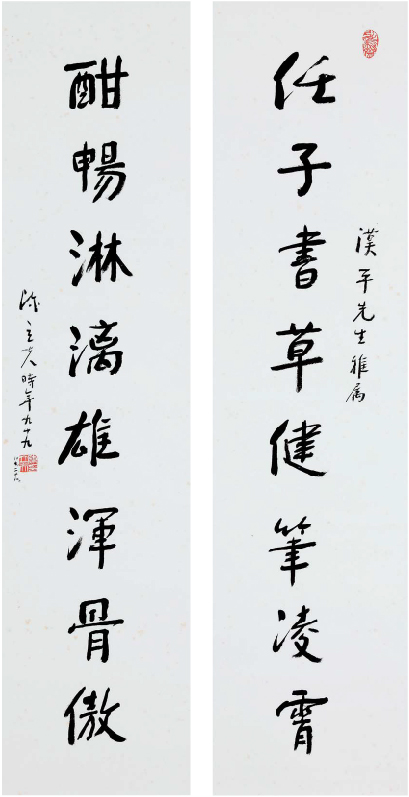 漢平先生雅属
任子書草健筆凌霄
酣暢淋漓雄渾骨傲
陳立夫時年九十九